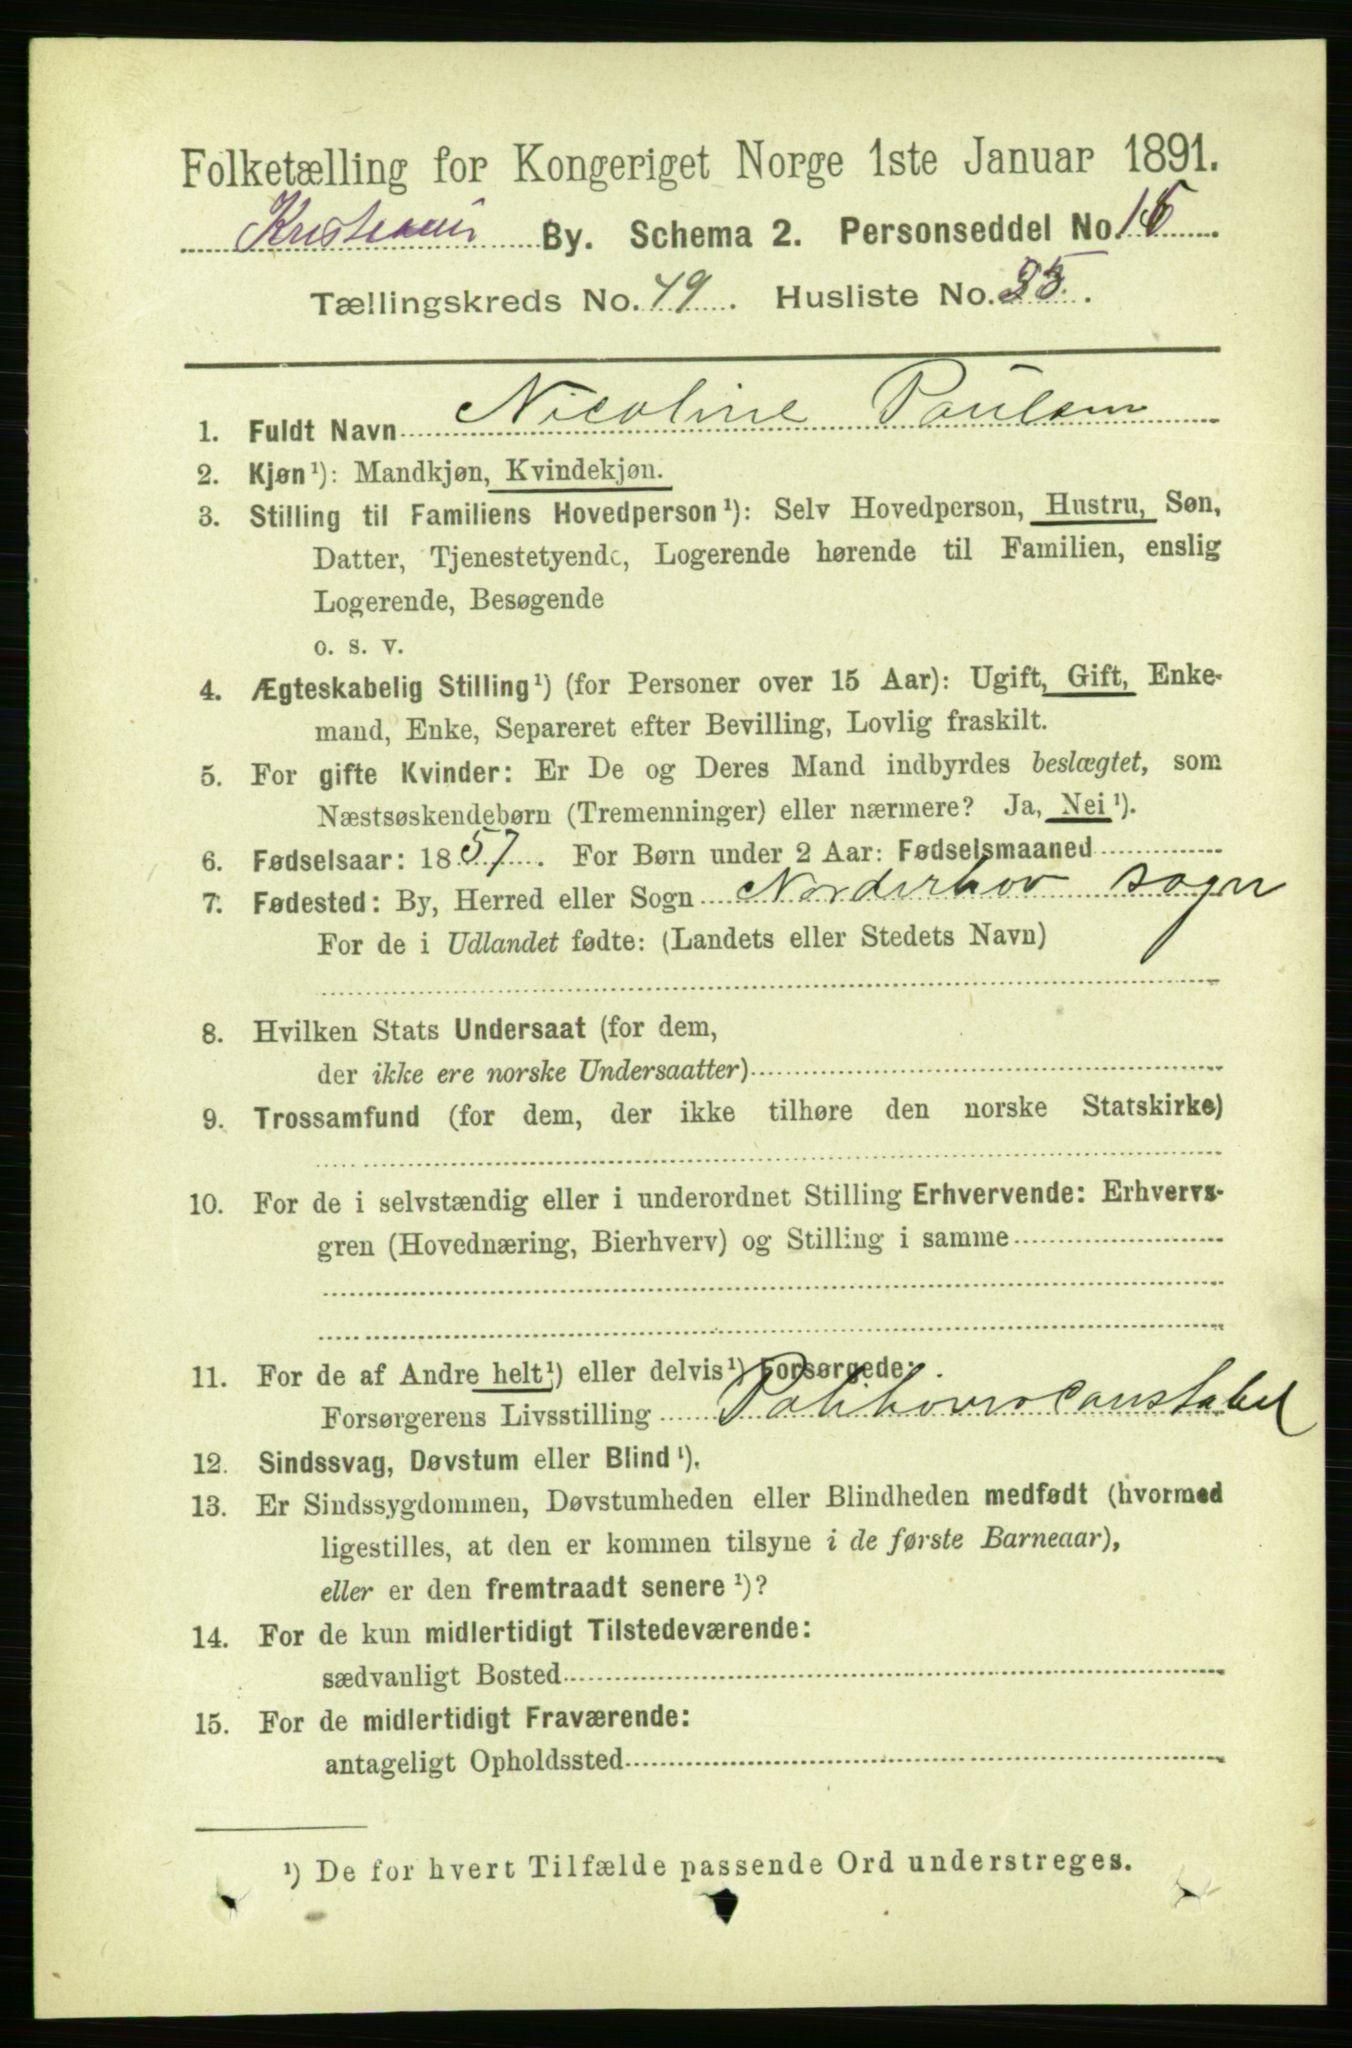 Folketælling for Kongeriget Norge 1ste Januar 1891.
Kristiania By. Schema 2. Personseddel No 15.
Tællingskreds No. 49. Husliste No. 35.
1. Fuldt Navn Nicoline Paulsen
2. Kjøn ¹): Mandkjøn, Kvindekjøn.
3. Stilling til Familiens Hovedperson ¹): Selv Hovedperson, Hustru, Søn,
Datter, Tjenestetyende, Logerende hørende til Familien, enslig
Logerende, Besøgende
o. s. v.
4. Ægteskabelig Stilling ¹) (for Personer over 15 Aar): Ugift, Gift, Enke-
mand, Enke, Separeret efter Bevilling, Lovlig fraskilt.
5. For gifte Kvinder: Er De og Deres Mand indbyrdes beslægtet, som
Næstsøskendebørn (Tremenninger) eller nærmere? Ja, Nei ¹).
6. Fødselsaar: 1857. For Børn under 2 Aar: Fødselsmaaned
7. Fødested: By, Herred eller Sogn Norderhov sogn
For de i Udlandet fødte: (Landets eller Stedets Navn)
8. Hvilken Stats Undersaat (for dem,
der ikke ere norske Undersaatter)
9. Trossamfund (for dem, der ikke tilhøre den norske Statskirke)
10. For de i selvstændig eller i underordnet Stilling Erhvervende: Erhvervs-
gren (Hovednæring, Bierhverv) og Stilling i samme
11. For de af Andre helt ¹) eller delvis ¹) Forsørgede:
Forsørgerens Livsstilling
12. Sindssvag, Døvstum eller Blind ¹).
13. Er Sindssygdommen, Døvstumheden eller Blindheden medfødt (hvormed
ligestilles, at den er kommen tilsyne i de første Barneaar),
eller er den fremtraadt senere ¹)?
14. For de kun midlertidigt Tilstedeværende:
sædvanligt Bosted
15. For de midlertidigt Fraværende:
antageligt Opholdssted
¹) De for hvert Tilfælde passende Ord understreges.